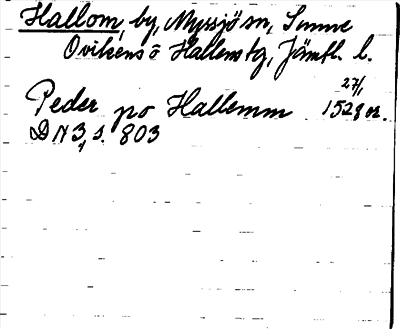 Hallom, by, Myssjö sn, Sunne
Ovikens o Hallens tg, Jämtl. l.
27/1
Peder po Hallemm 1528 or.
DN 3, s. 803